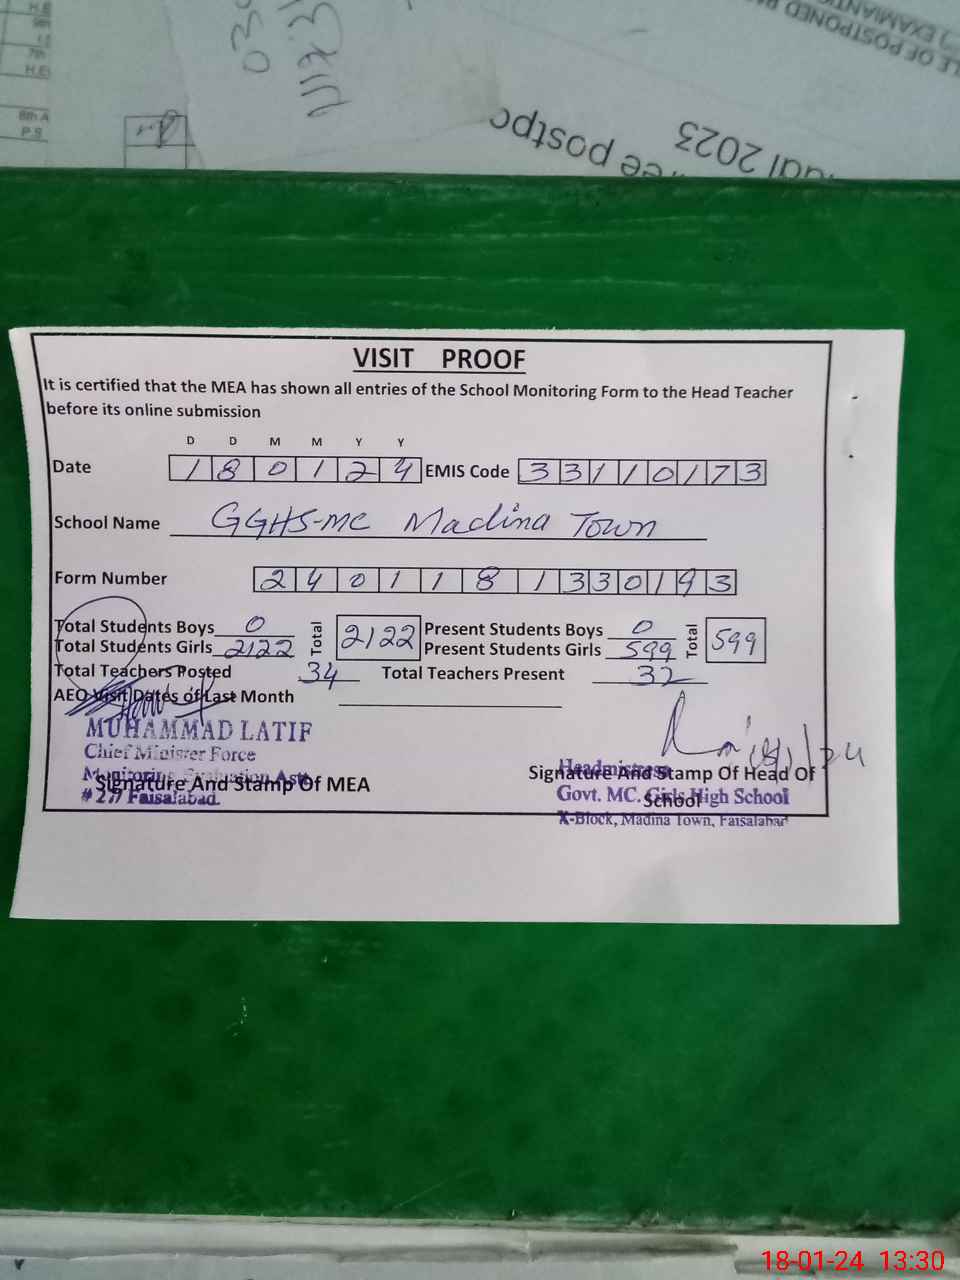 H.E
9th
7th
H.E
8th A
P.S
LE OF POSTPONED
EXAMIANTI
postpo
ual 2023
VISIT PROOF
It is certified that the MEA has shown all entries of the School Monitoring Form to the Head Teacher
before its online submission
D D M M Y Y
Date 1 8 0 1 2 4 EMIS Code 3 3 1 1 0 1 7 3
School Name GGHS-MC Madina Town
Form Number 2 4 0 1 1 8 1 3 3 0 1 9 3
Total Students Boys 0 Total 2122 Present Students Boys 0 Total 599
Total Students Girls 2122 Present Students Girls 599
Total Teachers Posted 34 Total Teachers Present 32
AEO Visit Dates of Last Month
MUHAMMAD LATIF
Chief Minister Force
Monitoring Evaluation Astt
Signature And Stamp Of MEA
# 277 Faisalabad.
Headmistress
Signature And Stamp Of Head Of
School
Govt. MC. Girls High School
X-Block, Madina Town, Faisalabad
18-01-24 13:30